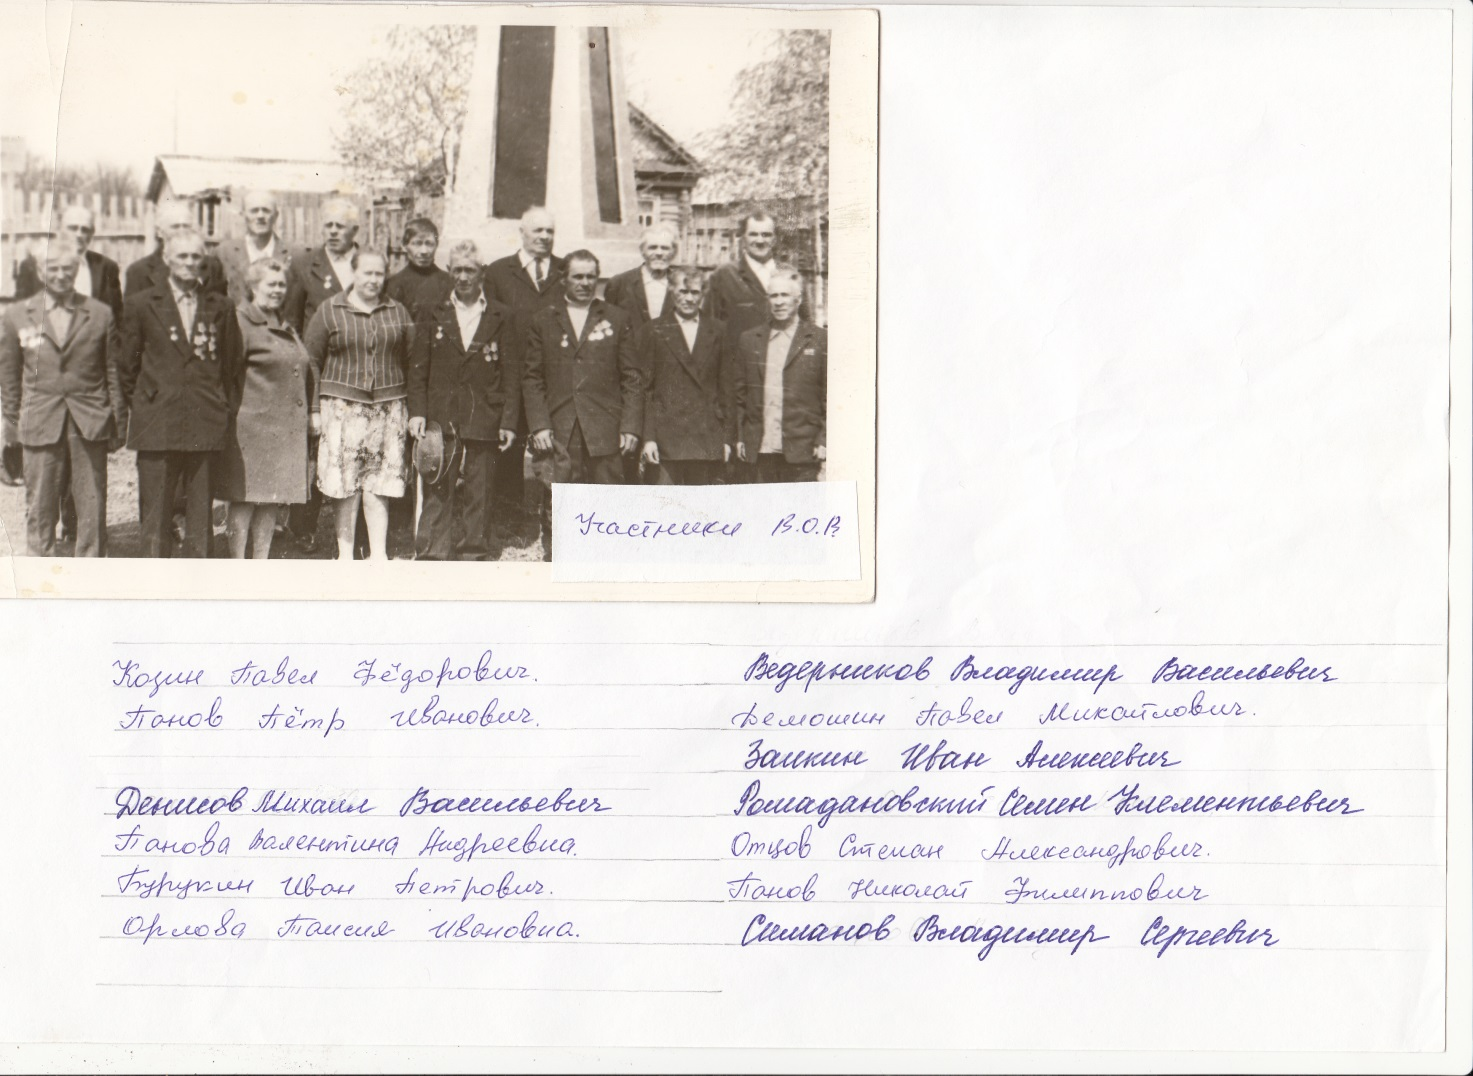 Участники В.О.В
Козин Павел Фёдорович.
Панов Пётр Иванович.
Денисов Михаил Васильевич
Панова Валентина Андреевна.
Бурукин Иван Петрович.
Орлова Таисия Ивановна.
Ведерников Владимир Васильевич
Демошин Павел Михайлович.
Заикин Иван Алексеевич
Ромадановский Семен Клементьевич
Отцов Степан Александрович.
Панов Николай Филиппович
Симанов Владимир Сергеевич